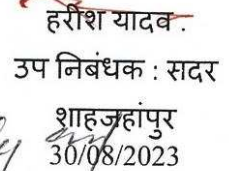 हरीश यादव .
उप निबंधक : सदर
शाहजहांपुर
30/08/2023